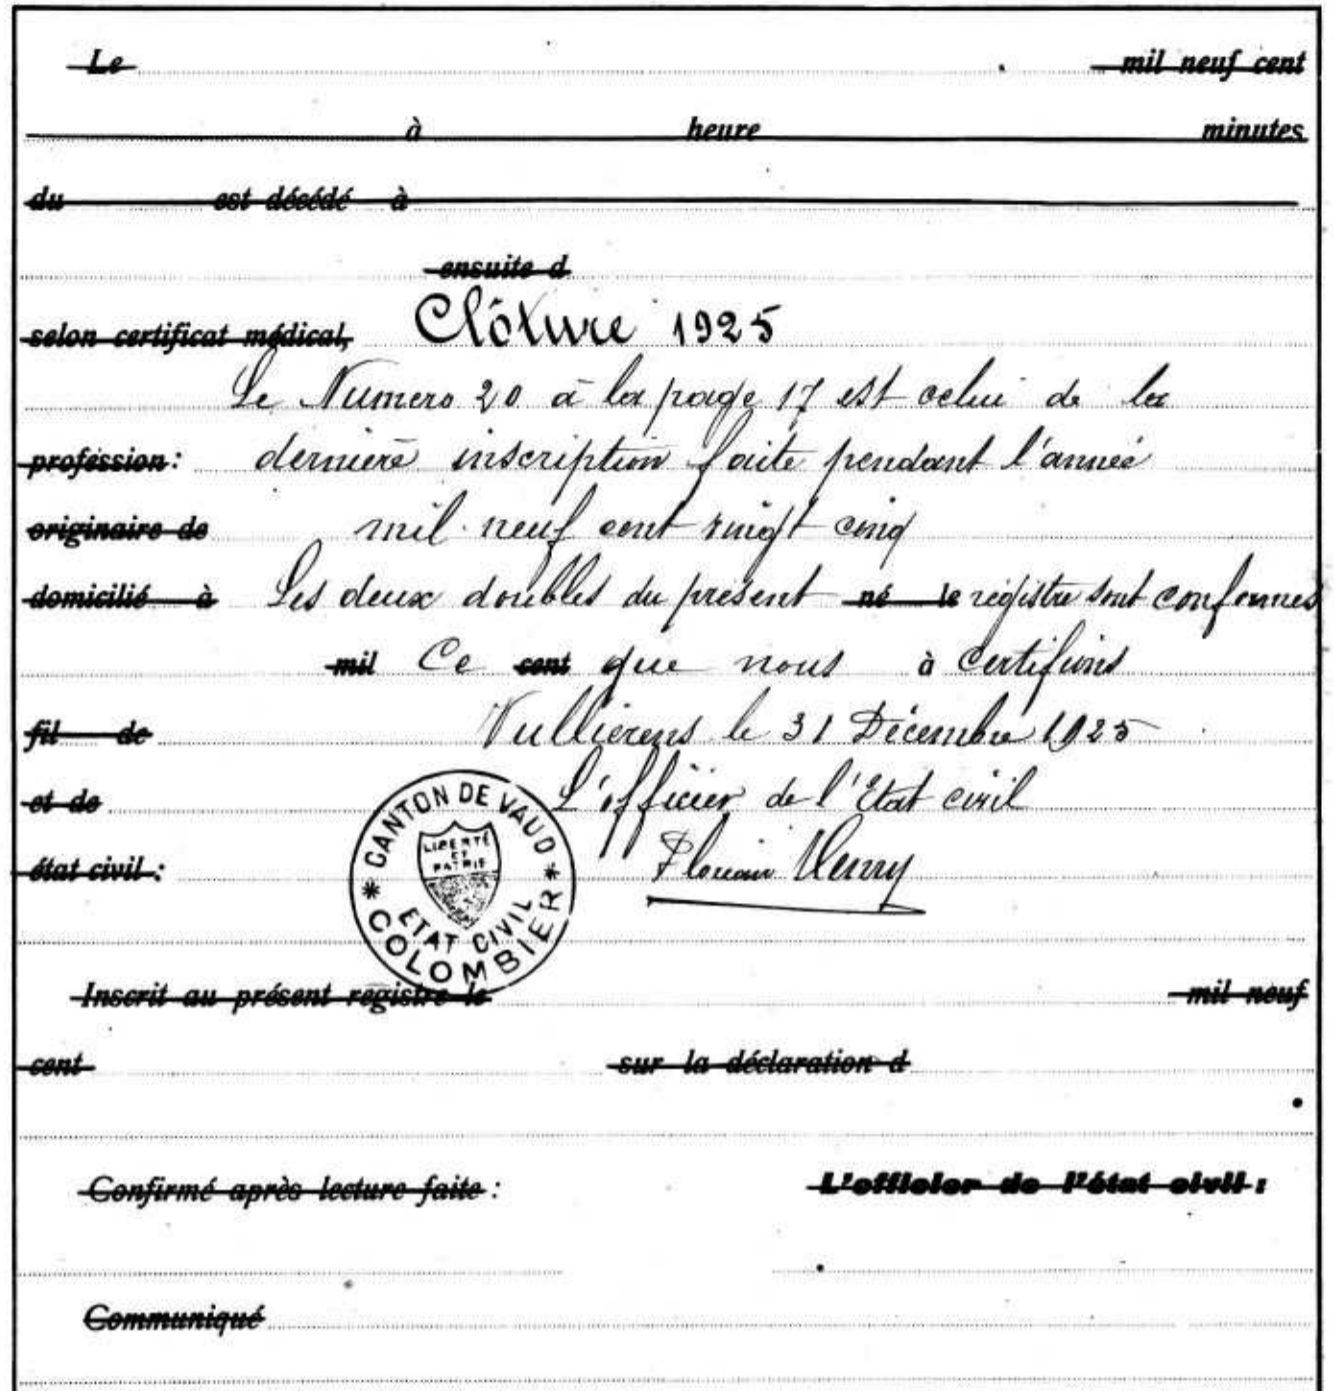 Le mil neuf cent
à heure minutes
du est décédé à
ensuite d
selon certificat médical, Clôture 1925
Le Numero 20 à la page 17 est celui de la
profession: dernière inscription faite pendant l'année
originaire de mil neuf cent vingt cinq
domicilié à Les deux doubles du présent né le registre sont conformes
mil Ce cent que nous à certifions
fil de Vullierens le 31 Décembre 1925
et de L'officier de l'Etat civil
état civil:
CANTON DE VAUD
LIBERTÉ
ET
PATRIE
ETAT CIVIL
COLOMBIER
Inscrit au présent registre le mil neuf
cent sur la déclaration d
Confirmé après lecture faite: L'officier de l'état civil:
Communiqué